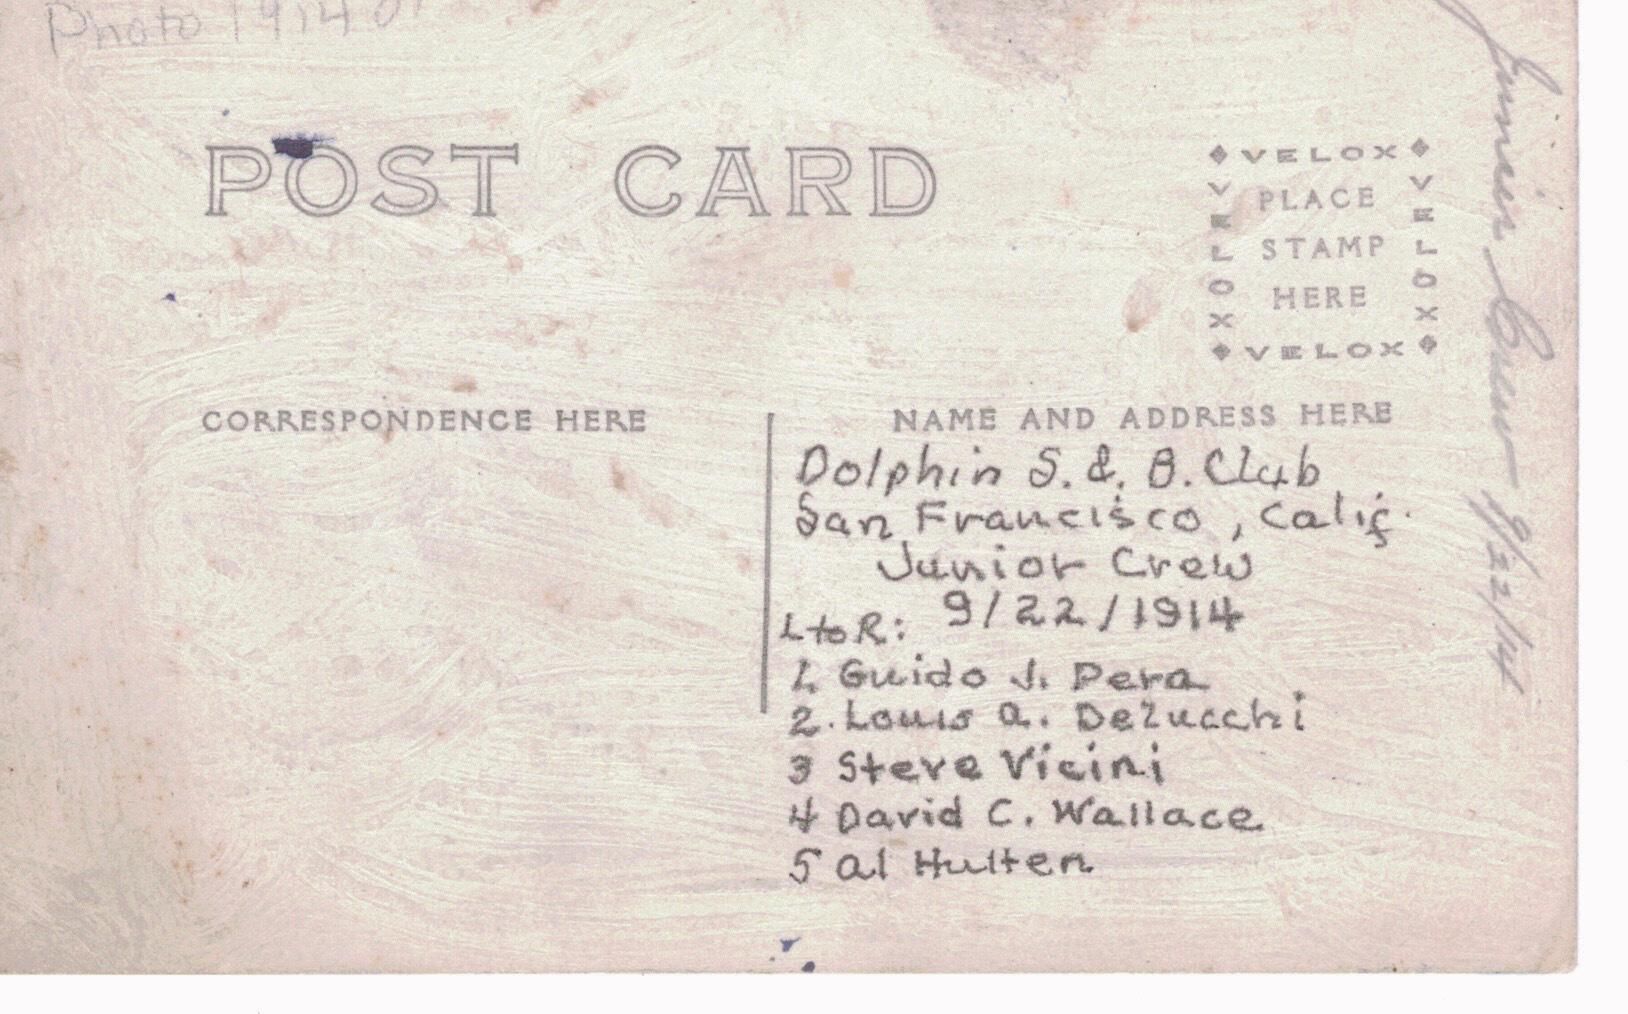 Photo 1914
POST CARD
VELOX
VELOX
PLACE
STAMP
HERE
VELOX
VELOX
CORRESPONDENCE HERE
NAME AND ADDRESS HERE
Dolphin S. & B. Club
San Francisco, Calif.
Junior Crew
9/22/1914
L to R:
1. Guido J. Pera
2. Louis A. Delucchi
3 Steve Vicini
4 David C. Wallace
5 Al Hulten
Junior Crew 9/22/14